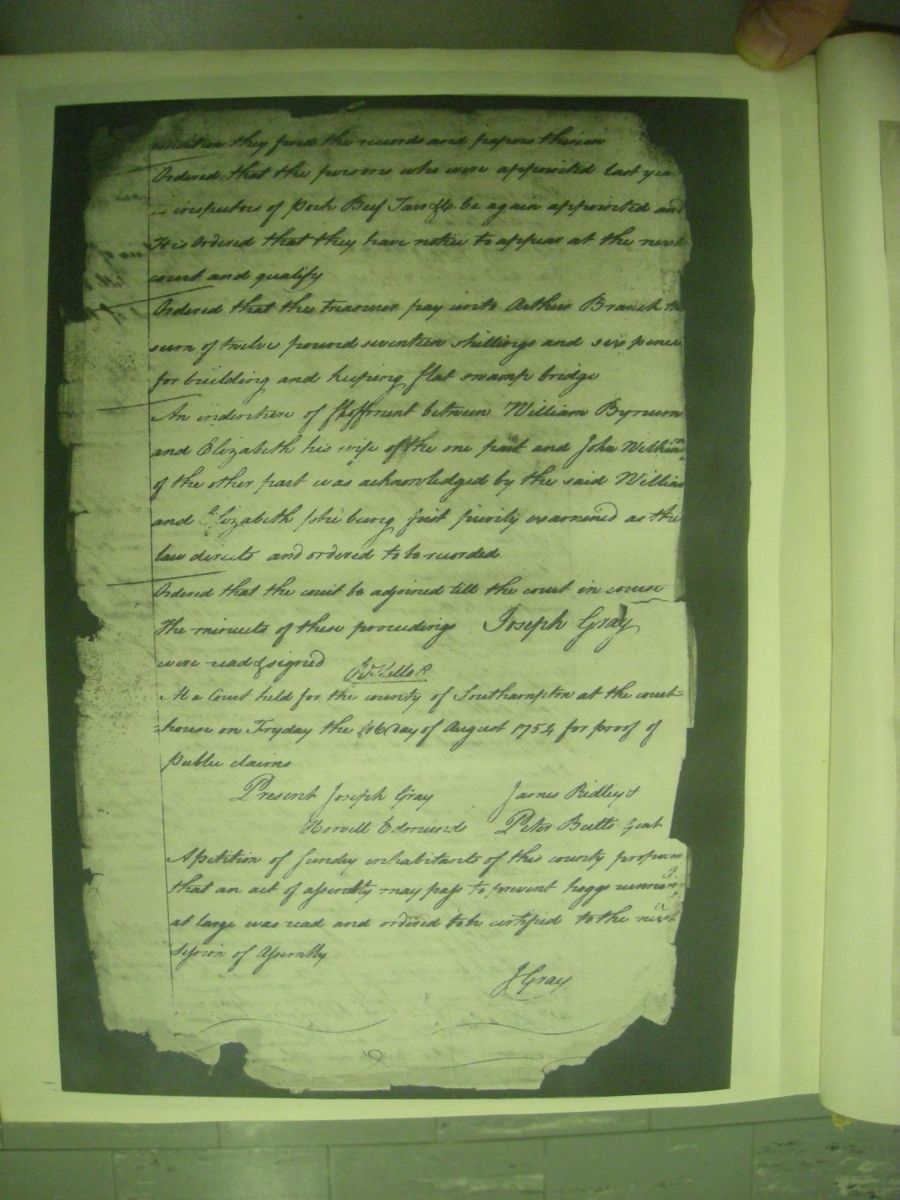 condition they find the records and papers therein
Ordered that the persons who were appointed last yea
inspectors of Pork Beef Tarr &c be again appointed and
It is Ordered that they have notice to appear at the next
court and qualify
Ordered that the treasurer pay unto Arthur Branch the
sum of twelve pound seventeen shillings and six pence
for building and keeping flat swamp bridge
An indenture of feoffment between William Bynum
and Elizabeth his wife of the one part and John
of the other part was acknowledged by the said William
and Elizabeth she being first privily examined as the
law directs and ordered to be recorded
Ordered that the court be adjorned till the court in course
The minuets of these proceedings Joseph Gray
were read & signed
At a Court held for the county of Southampton at the court-
house on Fryday the day of August 1754 for proof of
Publec claims
Present Joseph Gray James Ridley &
Howell Edmunds Peter Butts Gent
A petition of sundry inhabitants of this county
that an act of assembly may pass to prevent hoggs
at large was read and ordered to be certified to the next
session of Assembly
J Gray